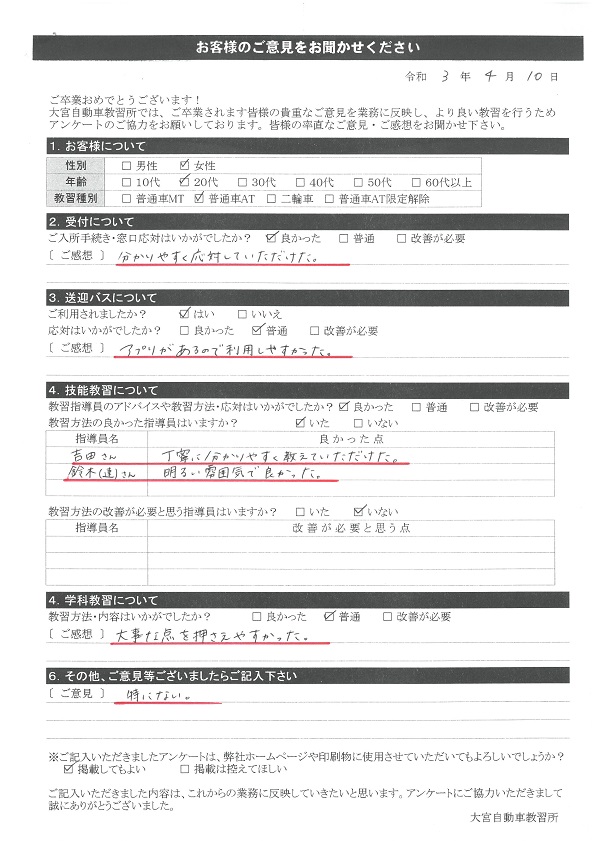 お客様のご意見をお聞かせください
令和 3 年 4 月 10 日
ご卒業おめでとうございます！
大宮自動車教習所では、ご卒業されます皆様の貴重なご意見を業務に反映し、より良い教習を行うため
アンケートのご協力をお願いしております。皆様の率直なご意見・ご感想をお聞かせ下さい。
1. お客様について
性別 □ 男性 ☑ 女性
年齢 □ 10代 ☑ 20代 □ 30代 □ 40代 □ 50代 □ 60代以上
教習種別 □ 普通車MT ☑ 普通車AT □ 二輪車 □ 普通車AT限定解除
2. 受付について
ご入所手続き・窓口応対はいかがでしたか？ ☑ 良かった □ 普通 □ 改善が必要
〔 ご感想 〕 分かりやすく応対していただけた。
3. 送迎バスについて
ご利用されましたか？ ☑ はい □ いいえ
応対はいかがでしたか？ □ 良かった ☑ 普通 □ 改善が必要
〔 ご感想 〕 アプリがあるので利用しやすかった。
4. 技能教習について
教習指導員のアドバイスや教習方法・応対はいかがでしたか？ ☑ 良かった □ 普通 □ 改善が必要
教習方法の良かった指導員はいますか？ ☑ いた □ いない
指導員名 良かった点
吉田さん 丁寧に分かりやすく教えていただけた。
鈴木(達)さん 明るい雰囲気で良かった。
教習方法の改善が必要と思う指導員はいますか？ □ いた ☑ いない
指導員名 改善が必要と思う点
4. 学科教習について
教習方法・内容はいかがでしたか？ □ 良かった ☑ 普通 □ 改善が必要
〔 ご感想 〕 大事な点を押さえやすかった。
6. その他、ご意見等ございましたらご記入下さい
〔 ご意見 〕 特にない。
※ご記入いただきましたアンケートは、弊社ホームページや印刷物に使用させていただいてもよろしいでしょうか？
☑ 掲載してもよい □ 掲載は控えてほしい
ご記入いただきました内容は、これからの業務に反映していきたいと思います。アンケートにご協力いただきまして
誠にありがとうございました。
大宮自動車教習所